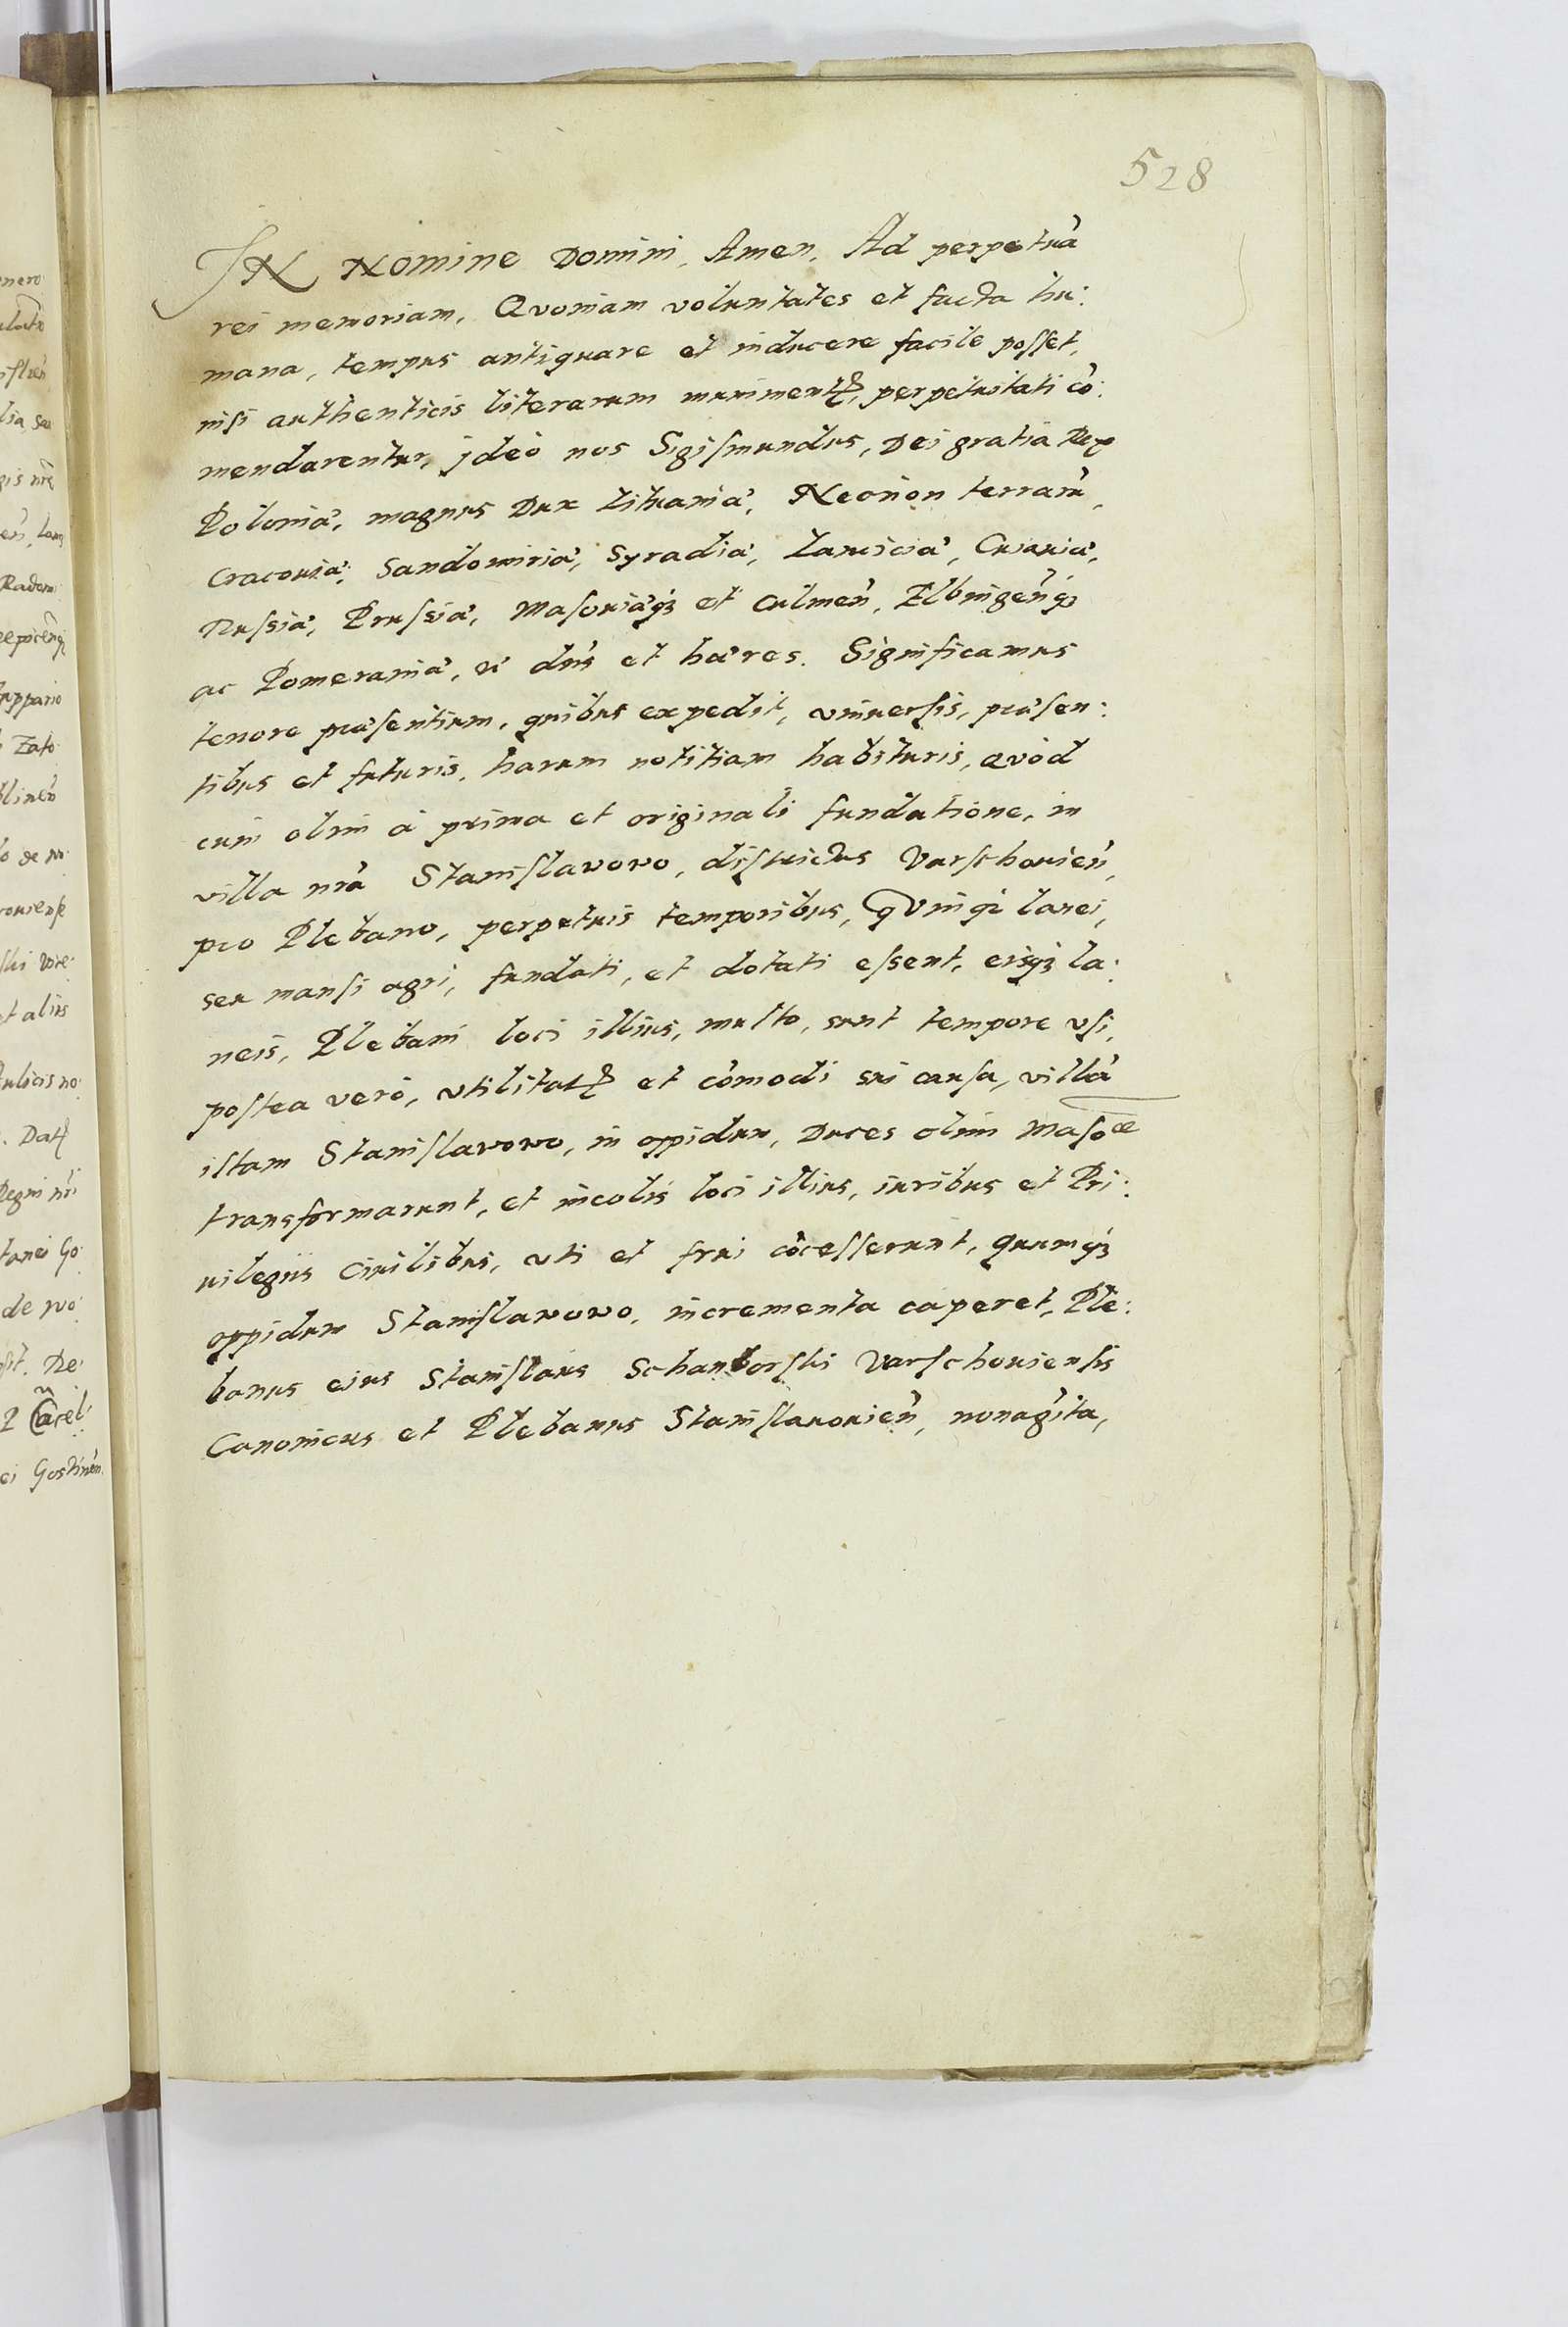 528
IN Nomine Domini, Amen. Ad perpetuã
rei memoriam. Qvoniam voluntates et facta hu:
mana, tempus antiquare et inducere facile posset,
nisi authenticis literarum munimentꝭ, perpetuitati cõ:
mendarentur, jdeò nos Sigismundus, Dei gratia Rex
Poloniæ, magnus Dux Lituaniæ, Necnon terrarũ,
Cracouiæ, Sandomiriæ, Syradiæ, Lanciciæ, Cuiauiæ,
Russiæ, Prussiæ, Masouiæqꝫ et Culmeñ, Elbingeñqꝫ
ac Pomeraniæ, dñs et hæres. Significamus
tenore præsentium, quibus expedit, vniuersis, præsen:
tibus et futuris, harum notitiam habituris, Qvòd
cum olim à prima et originali fundatione, in
villa nrã Stanislavovo, districtus Varschouień,
pro Plebano, perpetuis temporibus, qvinqꝫ lanei,
seu mansi agri, fundati, et dotati essent, eisqꝫ la:
neis, Plebani loci illius, multo, sunt tempore vsi,
postea verò, vtilitatꝭ et cõmodi sui causa, villã
istam Stanislavovo, in oppidum, Duces olim Masoᵒᵉ
transformarunt, et incolis loci illius, iuribus et Pri:
uilegiis Ciuilibus, vti et frui cõcesserunt, quumqꝫ
oppidum Stanislavovo, incrementa caperet, Ple:
banus eius Stanislaus Schamborski Varschouiensis
Canonicus et Plebanus Stanislauouień, nonagita,
nero
Radom
Zato
et aliis
Datꝭ
Regni nri
tanei Go
de no
Cãcel
ei Gostineñ